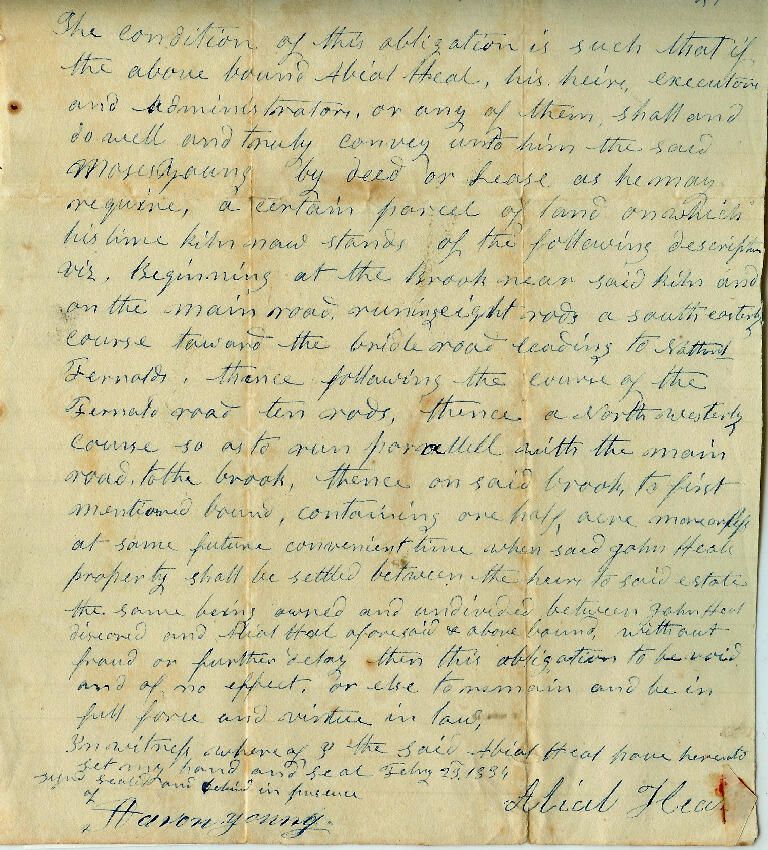 The condition of this obligation is such that if
the above bound Abial Heal, his heirs, executors
and Administrators, or any of them, shall and
do well and truly convey unto him the said
Moses Young by deed or Lease as he may
require, a certain parcel of land on which
his lime kiln now stands of the following description
viz. Beginning at the Brook near said kiln and
on the main road, runing eight rods a south easterly
course toward the bridle road leading to
Fernalds, thence following the course of the
Fernald road ten rods, thence a North westerly
course so as to run parallell with the main
road, to the brook, thence on said brook, to first
mentioned bound, containing one half, acre more or less
at some future convenient time when said John Heals
property shall be settled between the heirs to said estate
the same being owned and undivided between John Heal
diseased and Abial Heal aforesaid & above bound, without
fraud or further delay then this obligation to be void
and of no effect, or else to remain and be in
full force and virtue in law,
In witness whereof I the said Abial Heal have hereunto
set my hand and seal Febry 23, 1834
signd sealed and in presence
of
Aaron Young.
Abial Heal